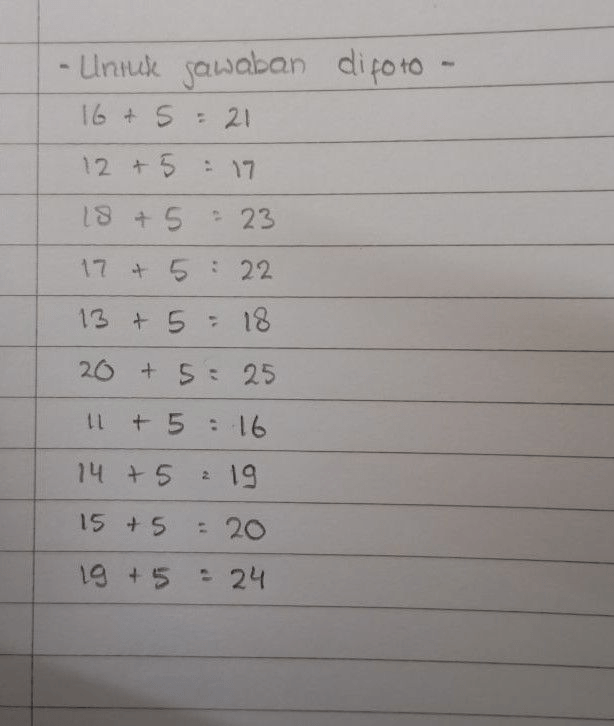 - Untuk jawaban difoto -
16 + 5 = 21
12 + 5 = 17
18 + 5 = 23
17 + 5 = 22
13 + 5 = 18
20 + 5 = 25
11 + 5 = 16
14 + 5 = 19
15 + 5 = 20
19 + 5 = 24